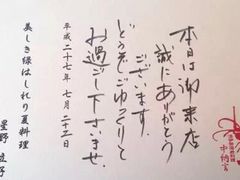 本日は御来店
誠にありがとう
ございます。
どうぞごゆっくりと
お過ごし下さいませ。
平成二十七年 七月
美しき緑はしれり夏料理
星野 立子
中納言